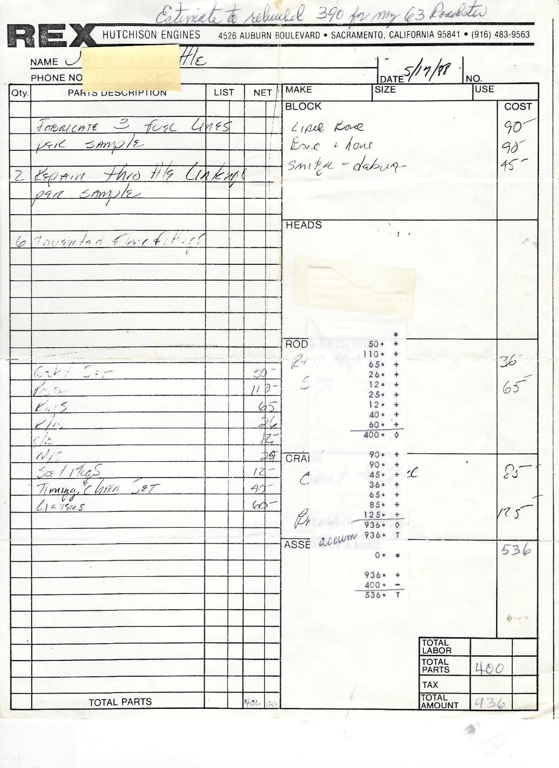 Estimate to rebuild 390 for my 63 Roadster
REX HUTCHISON ENGINES 4526 AUBURN BOULEVARD • SACRAMENTO, CALIFORNIA 95841 • (916) 483-9563
NAME
PHONE NO
DATE 5/17/88 NO.
Qty. PARTS DESCRIPTION LIST NET MAKE SIZE USE
BLOCK COST
FABRICATE 3 FUEL LINES
PER SAMPLE
2 REPAIR THROTTLE
PER SAMPLE
6 Inverted
Line Bore 90-
Bore + hone 90-
45-
HEADS
ROD
36-
65-
SET 50-
110-
65
26
12-
25
12-
TIMING CHAIN SET 40-
60-
CRA
85-
125-
ASSE
536
*
50• +
110• +
65• +
26• +
12• +
25• +
12• +
40• +
60• +
400• ◊
90• +
90• +
45• +
36• +
65• +
85• +
125• +
936• ◊
accum 936• T
0• *
936• +
400• −
536• T
TOTAL LABOR
TOTAL PARTS 400
TAX
TOTAL AMOUNT 936
TOTAL PARTS 400 00